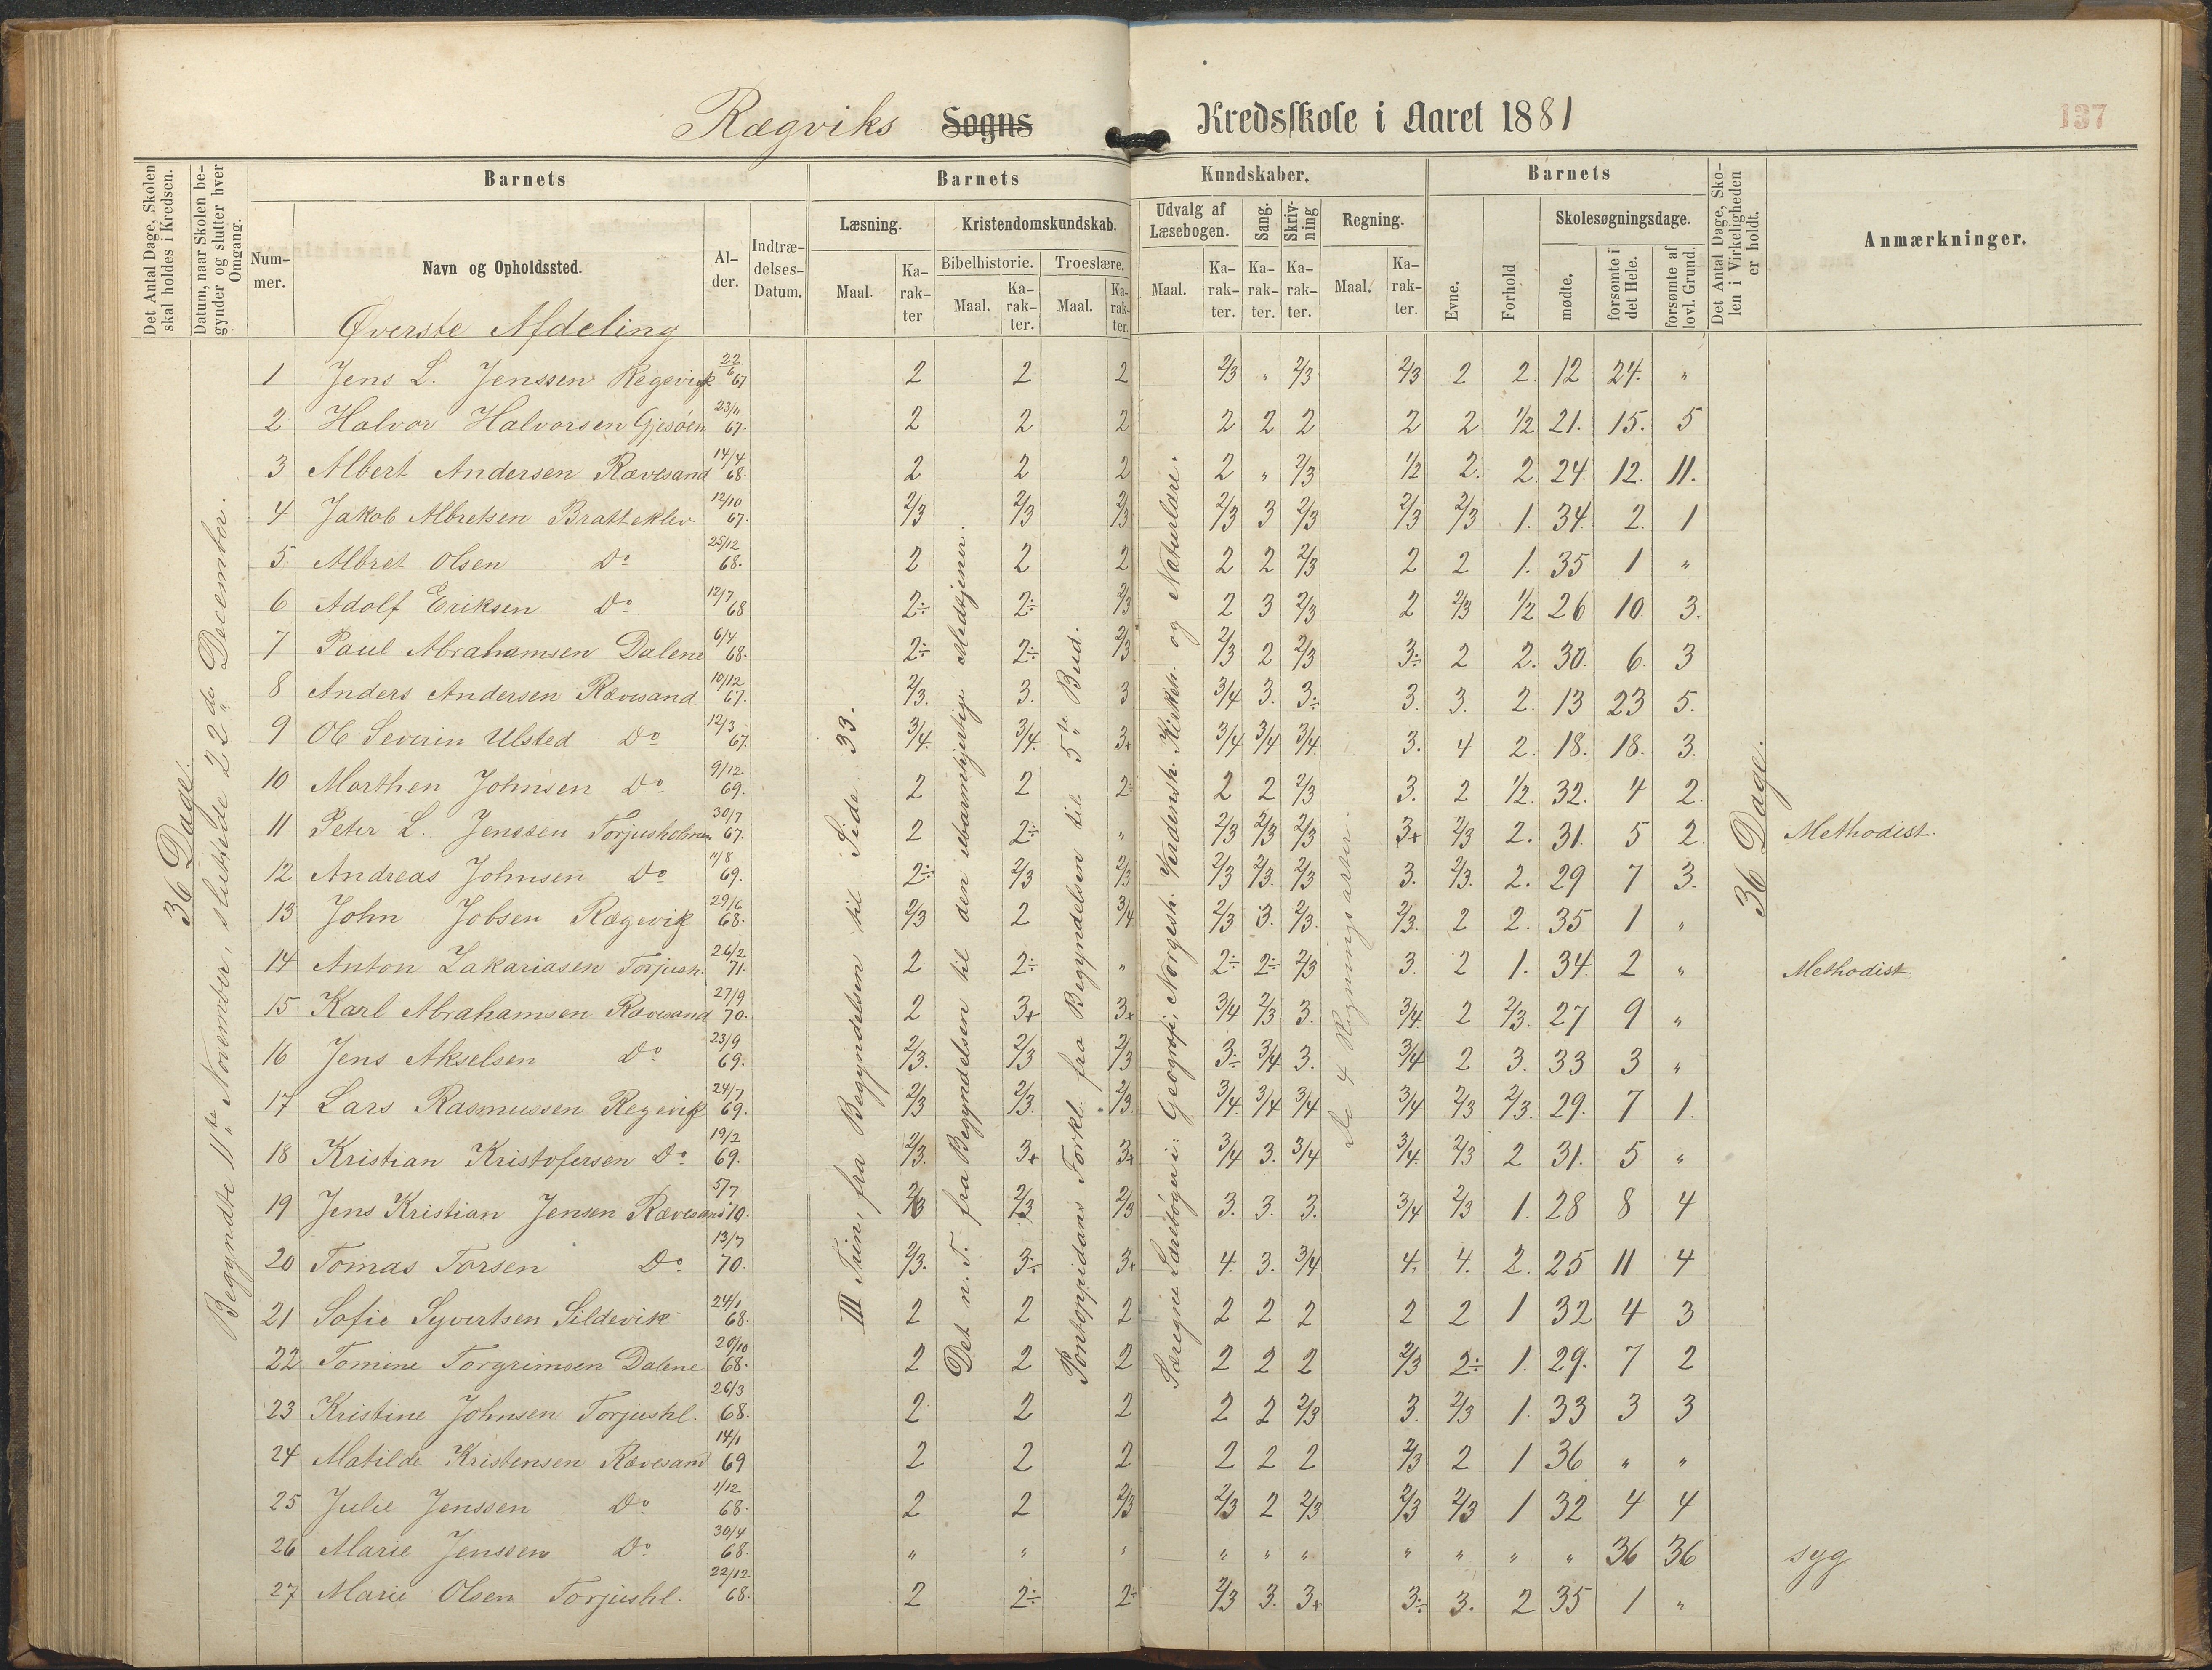 Rægviks Sogns Kredsskole i Aaret 1881
137
Det Antal Dage, Skolen skal holdes i Kredsen.
Datum, naar Skolen begynder og slutter hver Omgang.
Barnets
Barnets
Kundskaber.
Barnets
Det Antal Dage, Skolen i Virkeligheden er holdt.
Anmærkninger.
Nummer.
Navn og Opholdssted.
Alder.
Indtrædelses-Datum.
Læsning.
Kristendomskundskab.
Udvalg af Læsebogen.
Sang.
Skrivning
Regning.
Evne.
Forhold
Skolesøgningsdage.
Maal.
Karakter
Bibelhistorie.
Troeslære.
Maal.
Karakter.
Maal.
Karakter.
Maal.
Karakter.
Karakter.
Karakter.
Maal.
Karakter.
mødte.
forsømte i det Hele.
forsømte af lovl. Grund.
Øverste Afdeling
36 Dage.
Begyndte 11te November, sluttede 22de December.
III Trin, fra Begyndelsen til Side 33.
Det n. T. fra Begyndelsen til den ubarmhjertige Medtjener.
Pontoppidans Forkl. fra Begyndelsen til 5te Bud.
Særegne Lærebøger i: Geografi, Norgesh. Verdensh. Kirkeh. og Naturlære.
De 4 Regningsarter.
36 Dage.
1 Jens L. Jenssen Regevigk 22/6 67 2 2 2 2/3 " 2/3 2/3 2 2. 12 24. "
2 Halvor Halvorsen Gjesöen 23/11 67. 2 2 2 2 2 2 2 2 1/2 21. 15. 5
3 Albert Andersen Rævesand 14/4 68. 2 2 2 2 " 2/3 1/2 2. 2. 24. 12. 11.
4 Jakob Albretsen Bratteklev 12/10 67. 2/3 2/3 2/3 2/3 3 2/3 2/3 2/3 1. 34. 2. 1
5 Albret Olsen Do 25/12 68. 2 2 2 2 2 2/3 2 2 1. 35 1 "
6 Adolf Eriksen Do 12/7 68. 2÷ 2÷ 2/3 2 3 2/3 2 2/3 1/2 26 10 3.
7 Paul Abrahamsen Dalene 6/4 68. 2÷ 2÷ 2/3 2/3 2 2/3 3÷ 2 2. 30. 6. 3
8 Anders Andersen Rævesand 10/12 67. 2/3. 3. 3 3/4 3. 3÷ 3. 3. 2. 13 23 5.
9 Ole Severin Ulsted Do 12/3 67. 3/4. 3/4. 3+ 3/4 3/4 3/4. 3. 4 2. 18. 18. 3.
10 Marthen Johnsen Do 9/12 69. 2 2 2÷ 2 2 2/3 3. 2 1/2. 32. 4 2.
11 Peter L. Jenssen Torjusholmen 30/7 67. 2 2÷ " 2/3 2/3 2/3 3+ 2/3 2. 31. 5 2. Methodist.
12 Andreas Johnsen Do 11/8 69. 2÷ 2/3 2/3 2/3 2/3. 2/3 3. 2/3. 2. 29 7 3.
13 John Jobsen Rægevik 29/6 68. 2/3 2 3/4 2/3 3. 2/3. 2/3. 2 2. 35 1 "
14 Anton Zakariasen Torjush. 26/2 71. 2 2÷ " 2÷ 2÷ 2/3 3. 2 1. 34. 2 " Methodist.
15 Karl Abrahamsen Rævesand 27/9 70. 2 3+ 3+ 3/4 2/3 3. 3/4. 2 2/3. 27 9 "
16 Jens Akselsen Do 23/9 69. 2/3. 2/3 2/3 3÷ 3/4 3. 3/4 2 3. 33 3 "
17 Lars Rasmussen Regevik 24/7 69. 2/3 2/3. 2/3. 3/4. 3/4 3/4 3/4 2/3 2/3. 29. 7 1.
18 Kristian Kristofersen Do 19/2 69. 2/3. 3+ 3+ 3/4 3. 3/4 3/4. 2/3 2 31. 5 "
19 Jens Kristian Jensen Rævesand 5/7 70. 2/3 2/3 2/3 3. 3. 3. 3/4 2/3 1. 28 8 4
20 Tomas Torsen Do 13/7 70. 2/3. 3÷ 3+ 4. 3. 3/4 4. 4. 2. 25 11 4
21 Sofie Syvertsen Sildevik 24/1 68. 2 2 2 2 2 2 2 2 1 32 4 3
22 Tomine Torgrimsen Dalene 20/10 68. 2 2 2 2 2 2 2/3 2÷ 1. 29. 7 2
23 Kristine Johnsen Torjushl. 26/3 68. 2 2 2 2 2 2/3 3. 2/3 1. 33 3 3
24 Matilde Kristensen Rævesand 14/1 69 2 2 2 2 2 2 2/3 2 1 36 " "
25 Julie Jenssen Do 1/12 68. 2 2 2/3 2/3 2 2/3 2/3 2/3 1 32 4 4
26 Marie Jenssen Do 30/4 68. " " " " " " " " " " 36 36 syg
27 Marie Olsen Torjushl. 22/12 68. 2 2÷ 2÷ 2/3 3. 3+ 3÷ 3. 2 35 1 "